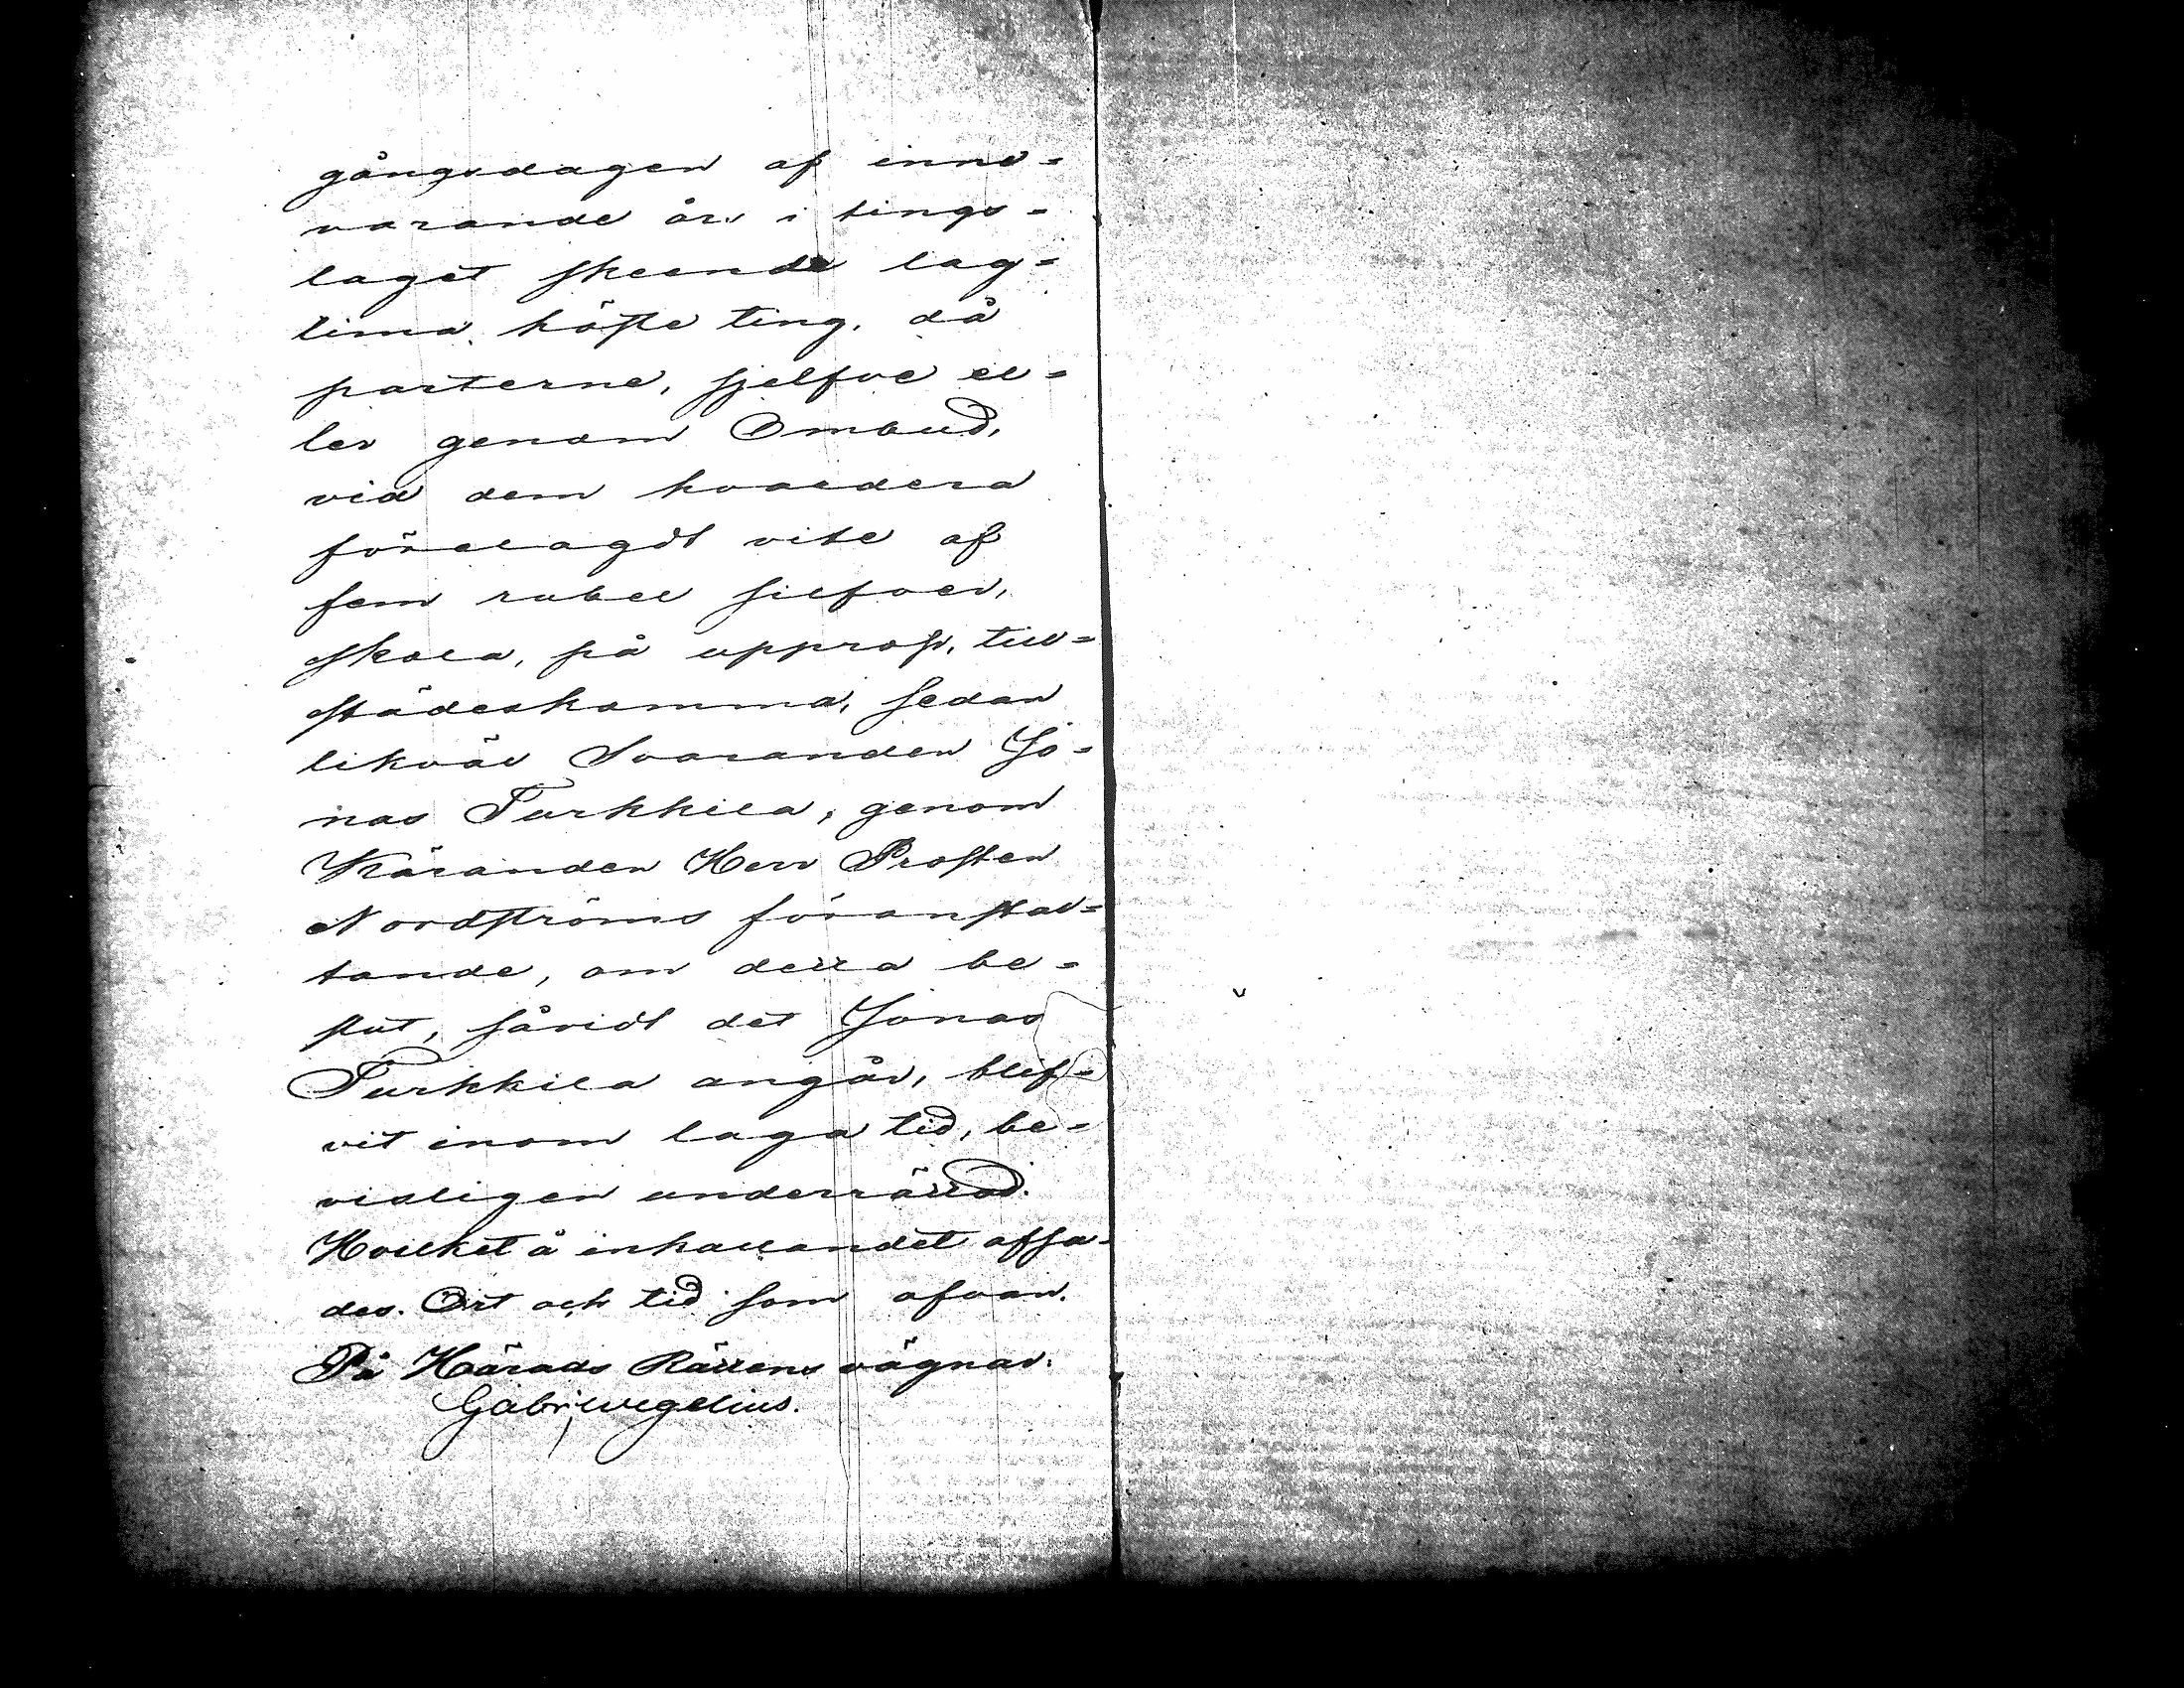 gångsdagen af inne=
varande år i tings=
laget skeende lag=
tima höste ting, då
parterne, sjelfve el=
ler genom Ombud,
vid dem hvardera
förelagdt vite af
fem rubel silfver,
skola, på upprop, till=
städeskomma, sedan
likväl Svaranden Jo=
nas Turkkila, genom
Käranden Herr Prosten
Nordströms föranstal=
tande, om detta be=
slut, såvidt det Jonas
Turkkila angår, blif=
vit inom laga tid, be=
visligen underrättad.
Hvilket å inkallandet afsa=
des. Ort och tid som ofvan.
På Härads Rättens vägnar.
Gabr. Wegelius.